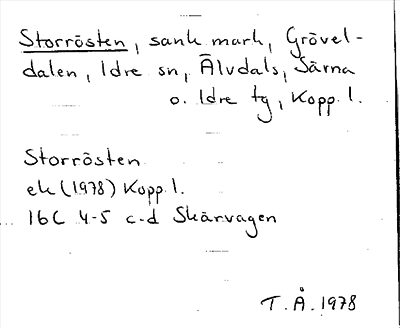 Storrösten, sank mark, Grövel-
dalen, Idre sn, Älvdals, Särna
o. Idre tg, Kopp. l.
Storrösten
ek (1978) Kopp. l.
16C 4-5 c-d Skärvagen
T. Å. 1978